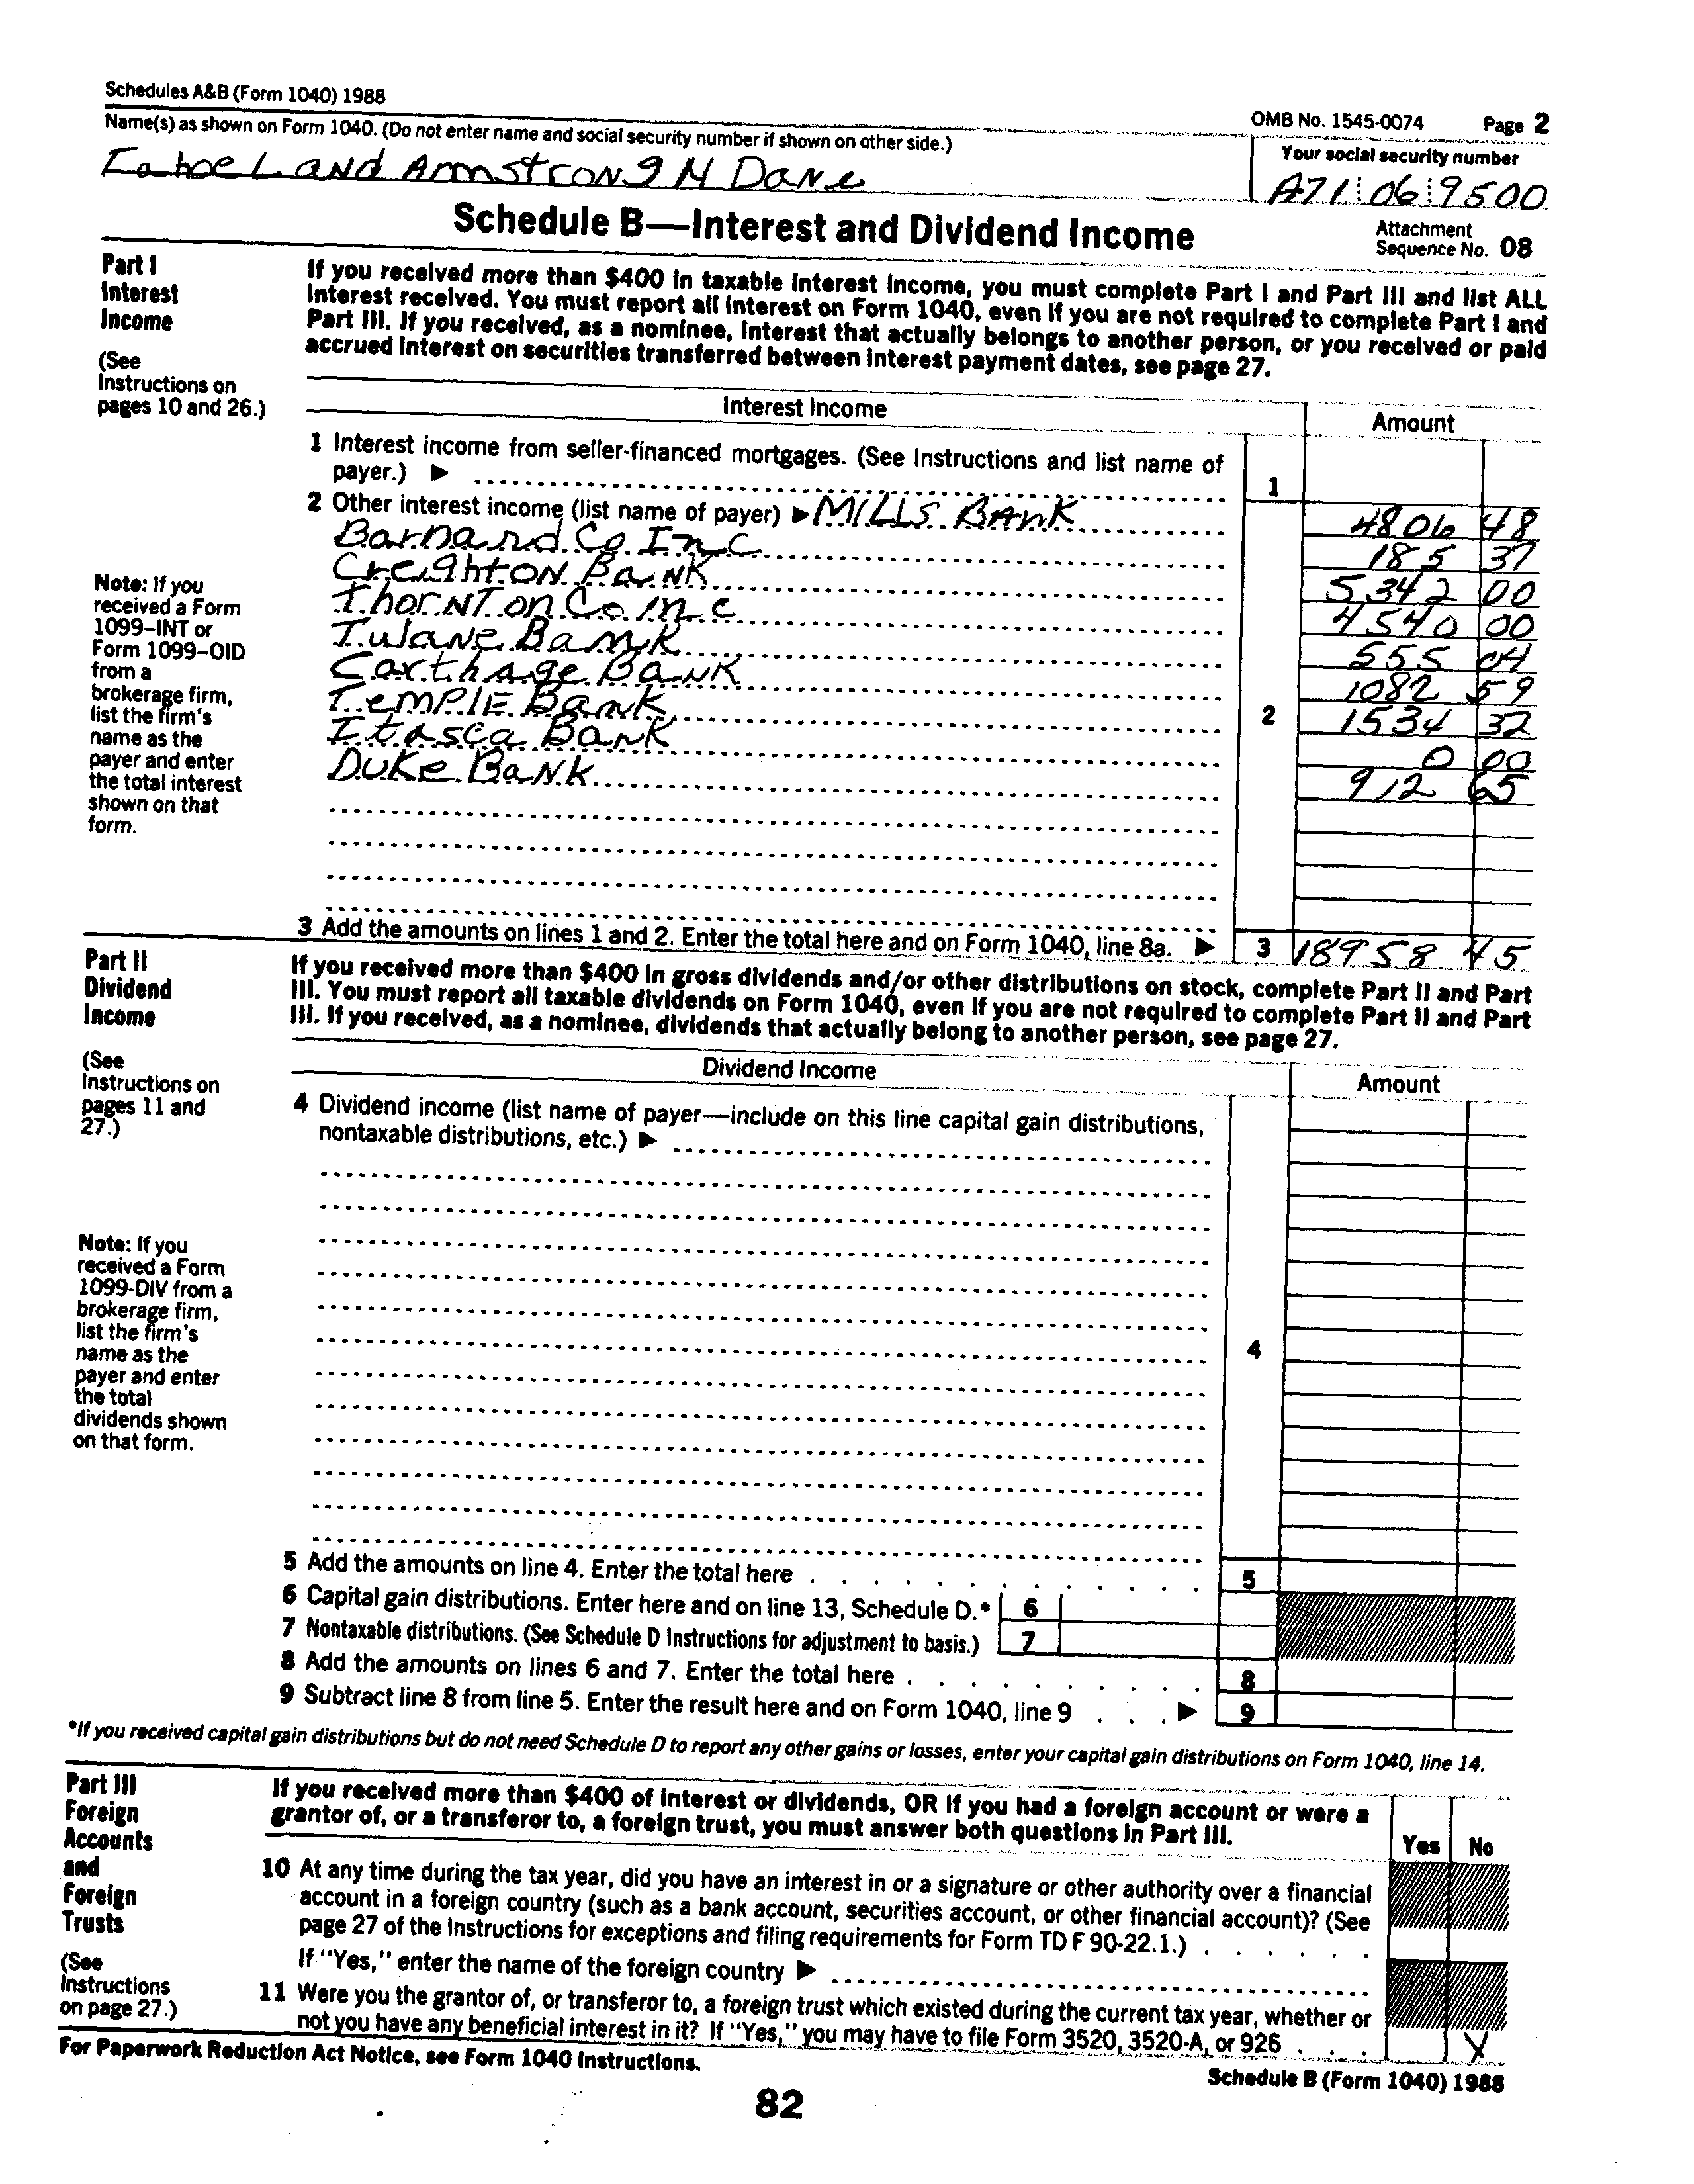 Schedules A&B (Form 1040) 1988
OMB No. 1545-0074 Page 2
Name(s) as shown on Form 1040. (Do not enter name and social security number if shown on other side.)
Your social security number
Tahoe L AND Armstrong N Dane
A71 06 9500
Schedule B—Interest and Dividend Income
Attachment
Sequence No. 08
Part I
Interest
Income
(See
Instructions on
pages 10 and 26.)
If you received more than $400 in taxable interest income, you must complete Part I and Part III and list ALL
interest received. You must report all interest on Form 1040, even if you are not required to complete Part I and
Part III. If you received, as a nominee, interest that actually belongs to another person, or you received or paid
accrued interest on securities transferred between interest payment dates, see page 27.
Interest Income
Amount
1 Interest income from seller-financed mortgages. (See Instructions and list name of
payer.) ▶
1
2 Other interest income (list name of payer) ▶ MILLS BANK
4806 48
Barnard Co Inc
185 37
Creighton Bank
5342 00
Thornton Co Inc
4540 00
Tulane Bank
555 04
Carthage Bank
1082 59
Temple Bank
2
1534 32
Itasca Bank
0 00
Duke Bank
912 65
Note: If you
received a Form
1099–INT or
Form 1099–OID
from a
brokerage firm,
list the firm's
name as the
payer and enter
the total interest
shown on that
form.
3 Add the amounts on lines 1 and 2. Enter the total here and on Form 1040, line 8a. ▶
3 18958 45
Part II
Dividend
Income
(See
Instructions on
pages 11 and
27.)
If you received more than $400 in gross dividends and/or other distributions on stock, complete Part II and Part
III. You must report all taxable dividends on Form 1040, even if you are not required to complete Part II and Part
III. If you received, as a nominee, dividends that actually belong to another person, see page 27.
Dividend Income
Amount
4 Dividend income (list name of payer—include on this line capital gain distributions,
nontaxable distributions, etc.) ▶
Note: If you
received a Form
1099-DIV from a
brokerage firm,
list the firm's
name as the
payer and enter
the total
dividends shown
on that form.
4
5 Add the amounts on line 4. Enter the total here . . . . . . . . . . . . 5
6 Capital gain distributions. Enter here and on line 13, Schedule D.* 6
7 Nontaxable distributions. (See Schedule D Instructions for adjustment to basis.) 7
8 Add the amounts on lines 6 and 7. Enter the total here . . . . . . . . . 8
9 Subtract line 8 from line 5. Enter the result here and on Form 1040, line 9 . . . ▶ 9
*If you received capital gain distributions but do not need Schedule D to report any other gains or losses, enter your capital gain distributions on Form 1040, line 14.
Part III
Foreign
Accounts
and
Foreign
Trusts
(See
Instructions
on page 27.)
If you received more than $400 of interest or dividends, OR if you had a foreign account or were a
grantor of, or a transferor to, a foreign trust, you must answer both questions in Part III.
Yes No
10 At any time during the tax year, did you have an interest in or a signature or other authority over a financial
account in a foreign country (such as a bank account, securities account, or other financial account)? (See
page 27 of the Instructions for exceptions and filing requirements for Form TD F 90-22.1.) . . . . . .
If "Yes," enter the name of the foreign country ▶
11 Were you the grantor of, or transferor to, a foreign trust which existed during the current tax year, whether or
not you have any beneficial interest in it? If "Yes," you may have to file Form 3520, 3520-A, or 926 . . . X
For Paperwork Reduction Act Notice, see Form 1040 Instructions.
Schedule B (Form 1040) 1988
82